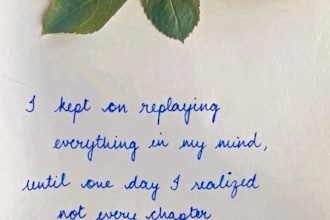 I kept on replaying
everything in my mind,
until one day I realized
not every chapter